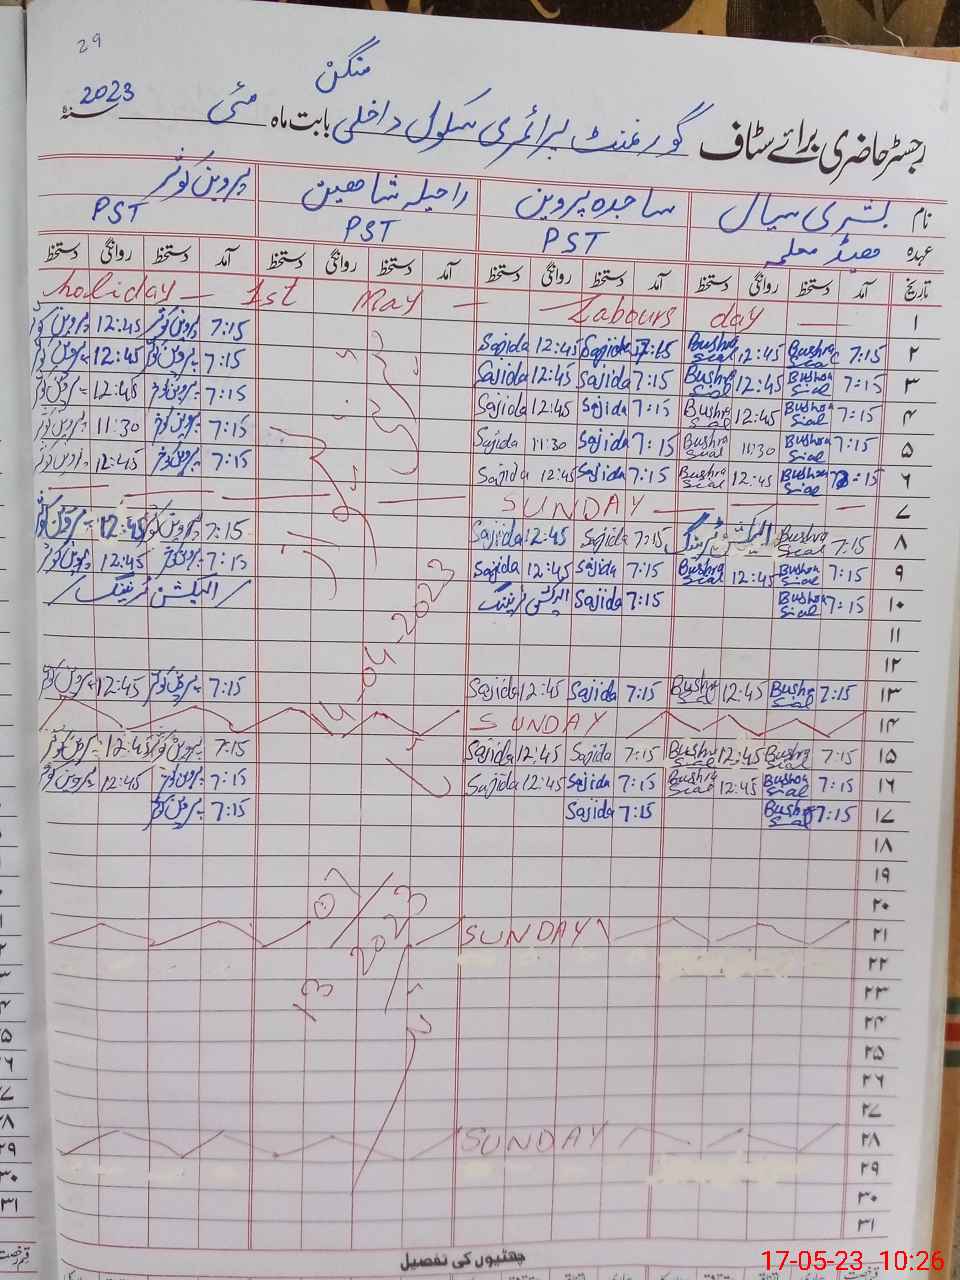 29
منگن
رجسٹر حاضری برائے سٹاف گورنمنٹ پرائمری سکول داخلی بابت ماہ مئی سنہ 2023
نام بشری سیال ساجدہ پروین راحیلہ شاھین پروین کوثر
عہدہ ھیڈ معلمہ PST PST PST
تاریخ آمد دستخط روانگی دستخط آمد دستخط روانگی دستخط آمد دستخط روانگی دستخط آمد دستخط روانگی دستخط
۱ holiday — 1st May — Labours day —
۲ 7:15 Bushra Sial 12:45 Bushra Sial 7:15 Sajida 12:45 Sajida 7:15 پروین کوثر 12:45 پروین کوثر
۳ 7:15 Bushra Sial 12:45 Bushra Sial 7:15 Sajida 12:45 Sajida 7:15 پروین کوثر 12:45 پروین کوثر
۴ 7:15 Bushra Sial 12:45 Bushra Sial 7:15 Sajida 12:45 Sajida 7:15 پروین کوثر 12:45 پروین کوثر
۵ 7:15 Bushra Sial 11:30 Bushra Sial 7:15 Sajida 11:30 Sajida 7:15 پروین کوثر 11:30 پروین کوثر
۶ 7:15 Bushra Sial 12:45 Bushra Sial 7:15 Sajida 12:45 Sajida 7:15 پروین کوثر 12:45 پروین کوثر
۷ SUNDAY
۸ 7:15 Bushra Sial الیکشن ٹریننگ 7:15 Sajida 12:45 Sajida 7:15 پروین کوثر 12:45 پروین کوثر
۹ 7:15 Bushra Sial 12:45 Bushra Sial 7:15 Sajida 12:45 Sajida 7:15 پروین کوثر 12:45 پروین کوثر
۱۰ 7:15 Bushra Sial 7:15 Sajida الیکشن ٹریننگ الیکشن ٹریننگ
۱۱
۱۲
۱۳ 7:15 Bushra Sial 12:45 Bushra Sial 7:15 Sajida 12:45 Sajida 7:15 پروین کوثر 12:45 پروین کوثر
۱۴ SUNDAY
۱۵ 7:15 Bushra Sial 12:45 Bushra Sial 7:15 Sajida 12:45 Sajida 7:15 پروین کوثر 12:45 پروین کوثر
۱۶ 7:15 Bushra Sial 12:45 Bushra Sial 7:15 Sajida 12:45 Sajida 7:15 پروین کوثر 12:45 پروین کوثر
۱۷ 7:15 Bushra Sial 7:15 Sajida 7:15 پروین کوثر
۱۸
۱۹
۲۰
۲۱ SUNDAY
۲۲
۲۳
۲۴
۲۵
۲۶
۲۷
۲۸ SUNDAY
۲۹
۳۰
۳۱
چھٹیوں کی تفصیل
17-05-23 10:26